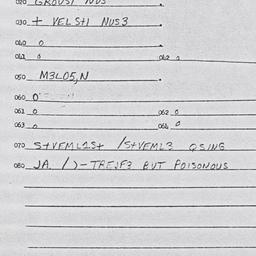 020 GROUSI NUS
030 + VELSHI NUS3
040 0
041 0 042 0
050 M3LO5,N
060 0
061 0 062 0
063 0 064 0
070 S+VEML1S+ /S+VEML3 QSING
080 JA /)-TREJF3 BUT POISONOUS